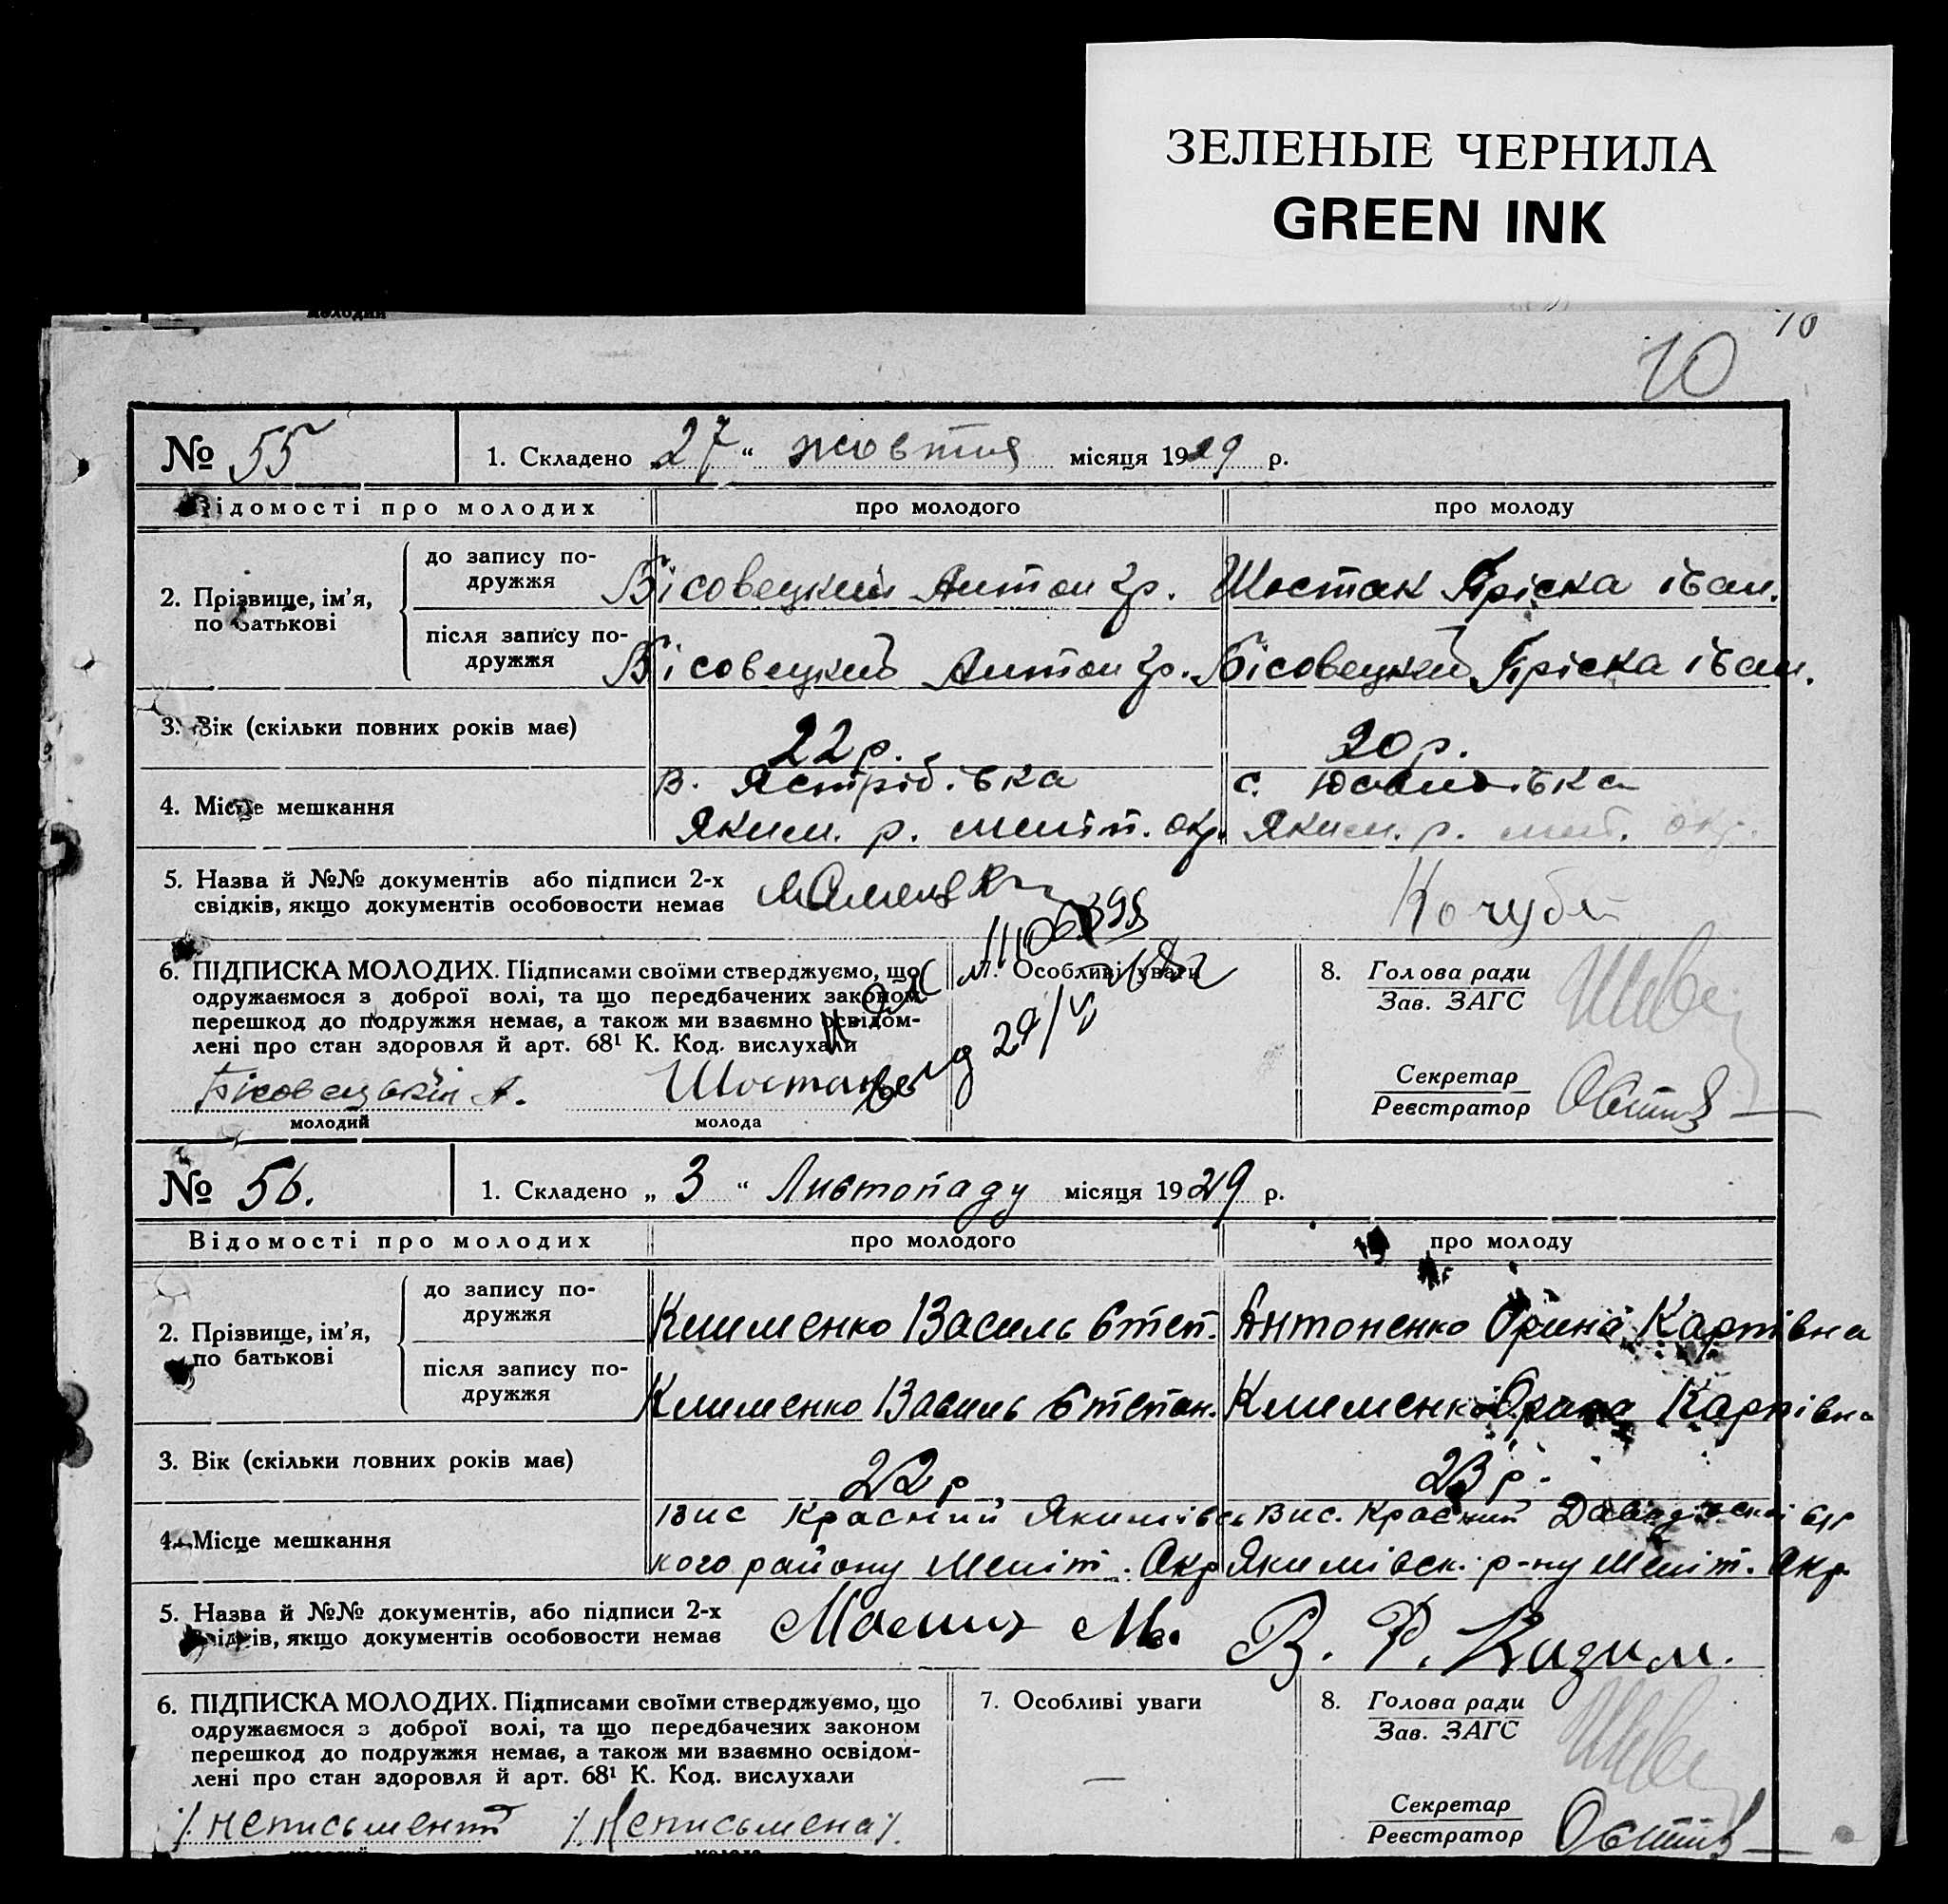 ЗЕЛЕНЫЕ ЧЕРНИЛА
GREEN INK
10
10
№ 55
1. Складено „27“ жовтня місяця 1929 р.
Відомості про молодих
про молодого
про молоду
2. Прізвище, ім'я, по батькові
до запису подружжя
Бісовецкий Антон Гр.
Шостак Пріска Іван.
після запису подружжя
Бісовецкий Антон Гр.
Бісовецкий Пріска Іван.
3. Вік (скільки повних років має)
22 р.
20 р.
4. Місце мешкання
в. Ястріб.івка
Яким. р. меліт. окр.
с.
Яким. р. мел. окр.
5. Назва й №№ документів або підписи 2-х
свідків, якщо документів особовости немає
Кочубей
6. ПІДПИСКА МОЛОДИХ. Підписами своїми стверджуємо, що
одружаємося з доброї волі, та що передбачених законом
перешкод до подружжя немає, а також ми взаємно освідом-
лені про стан здоров'я й арт. 68¹ К. Код. вислухали
Бісовецький А.
молодий
Шостак
молода
7. Особливі уваги
29/V
8. Голова ради
Зав. ЗАГС
Секретар
Реєстратор
№ 56.
1. Складено „3“ Листопаду місяця 1929 р.
Відомості про молодих
про молодого
про молоду
2. Прізвище, ім'я, по батькові
до запису подружжя
Клименко Василь Степ.
Антоненко Орина Карпівна
після запису подружжя
Клименко Василь Степан.
Клименко Орина Карпівна
3. Вік (скільки повних років має)
22 р
23 р.
4. Місце мешкання
Вис Красний Якимівсь
кого району Меліт. Окр
Вис. Красний Давидівскої с/р
Якимівск. р-ну Меліт. Окр.
5. Назва й №№ документів, або підписи 2-х
свідків, якщо документів особовости немає
В. Р. Кизим.
6. ПІДПИСКА МОЛОДИХ. Підписами своїми стверджуємо, що
одружаємося з доброї волі, та що передбачених законом
перешкод до подружжя немає, а також ми взаємно освідом-
лені про стан здоров'я й арт. 68¹ К. Код. вислухали
/неписьмений
/Неписьмена/.
7. Особливі уваги
—
8. Голова ради
Зав. ЗАГС
Секретар
Реєстратор